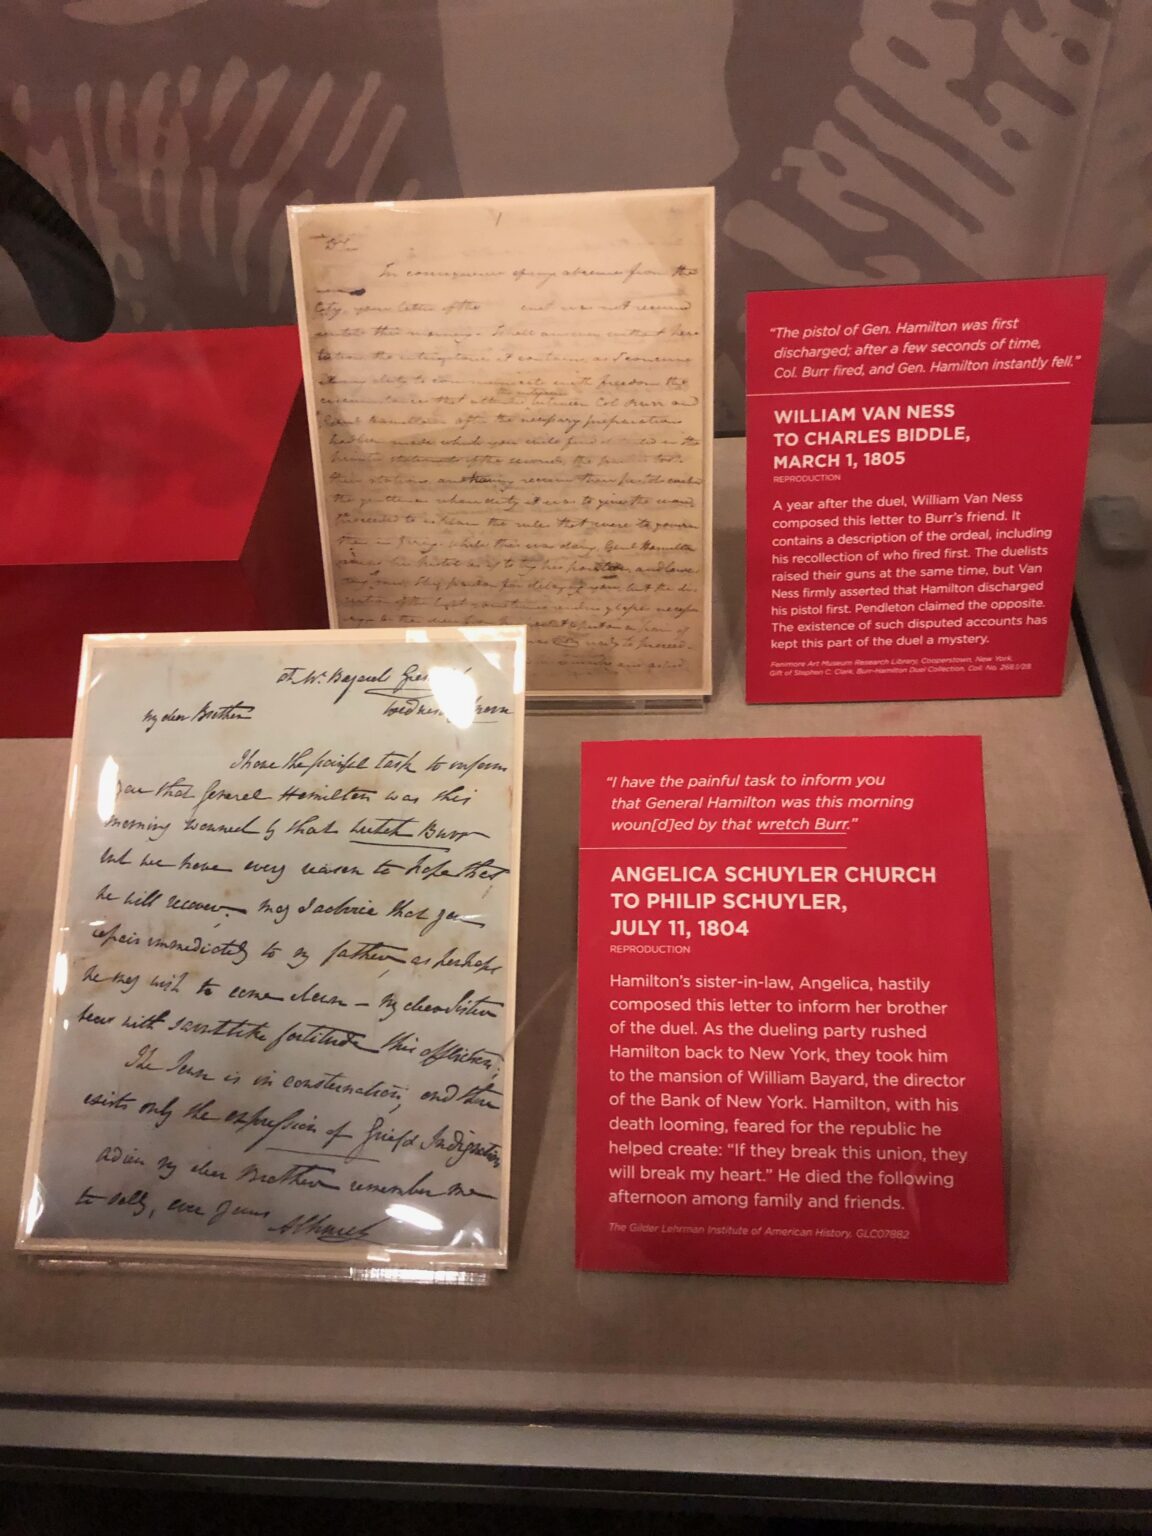 In consequence of my absence from the
City, your letter of the inst was not received
until this morning. I shall answer without hesi
tation the interrogatories it contains as I conceive
it my duty to communicate with freedom the
circumstances that attended the interview between Col Burr and
Genl Hamilton. after the necessary preparations
had been made which you will find detailed in the
statement of the seconds, the parties took
their stations, and having received their pistols
the gentleman whose duty it was to give the word
proceeded to explain the rules that were to govern
them in firing. While this was doing, Genl Hamilton
raised his pistol as if to try his position, and lowering
"The pistol of Gen. Hamilton was first
discharged; after a few seconds of time,
Col. Burr fired, and Gen. Hamilton instantly fell."
WILLIAM VAN NESS
TO CHARLES BIDDLE,
MARCH 1, 1805
REPRODUCTION
A year after the duel, William Van Ness
composed this letter to Burr's friend. It
contains a description of the ordeal, including
his recollection of who fired first. The duelists
raised their guns at the same time, but Van
Ness firmly asserted that Hamilton discharged
his pistol first. Pendleton claimed the opposite.
The existence of such disputed accounts has
kept this part of the duel a mystery.
Fenimore Art Museum Research Library, Cooperstown, New York,
Gift of Stephen C. Clark, Burr-Hamilton Duel Collection, Coll. No.
at Wm Bayard
Wednesday
My dear Brother
I have the painful task to inform
you that General Hamilton was this
morning wouned by that wretch Burr
but we have every reason to hope that
he will recover. May I advice that you
repair immediately to my father, as perhaps
he may wish to come down – My dear Sister
bears with saintlike fortitude this affliction;
The Town is in consternation, and there
exists only the expression of Grief & Indignation
adieu my dear Brother remember me
to Sally, ever yours
A Church
"I have the painful task to inform you
that General Hamilton was this morning
woun[d]ed by that wretch Burr."
ANGELICA SCHUYLER CHURCH
TO PHILIP SCHUYLER,
JULY 11, 1804
REPRODUCTION
Hamilton's sister-in-law, Angelica, hastily
composed this letter to inform her brother
of the duel. As the dueling party rushed
Hamilton back to New York, they took him
to the mansion of William Bayard, the director
of the Bank of New York. Hamilton, with his
death looming, feared for the republic he
helped create: "If they break this union, they
will break my heart." He died the following
afternoon among family and friends.
The Gilder Lehrman Institute of American History, GLC07882